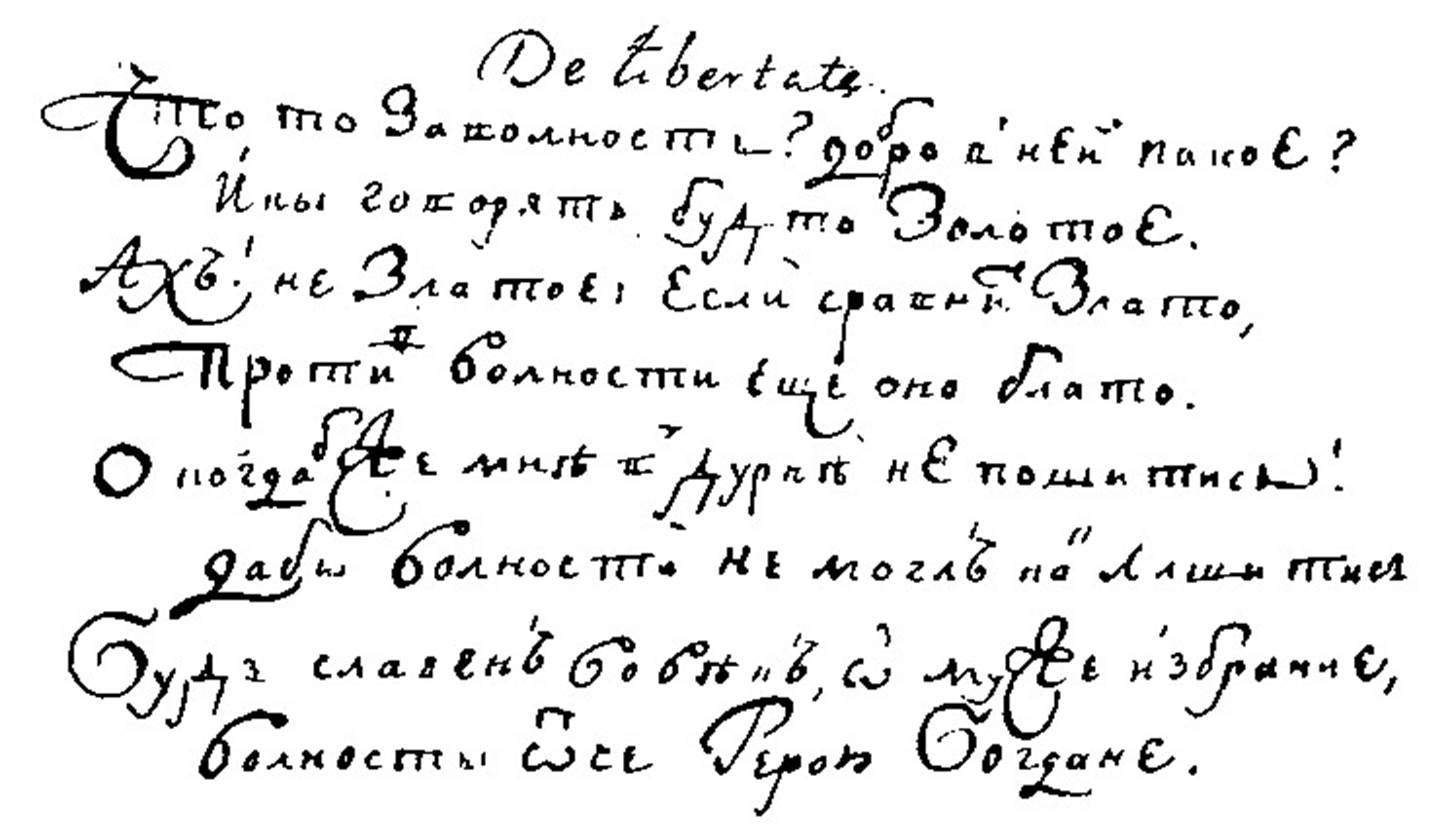 De Libertate.
Что то За волность? добро в ней какое?
Ины говорять, будто Золотое.
Ахъ! не Златое: Если сравнить Злато,
Против волности Еще оно блато.
О когда бже мнѣ в дурнѣ нЕ пошитись!
дабы волности не моглъ как лишитись
Будь славенъ вовѣкъ, ѡ муже избранне,
волносты ѡтче Герою Богдане.